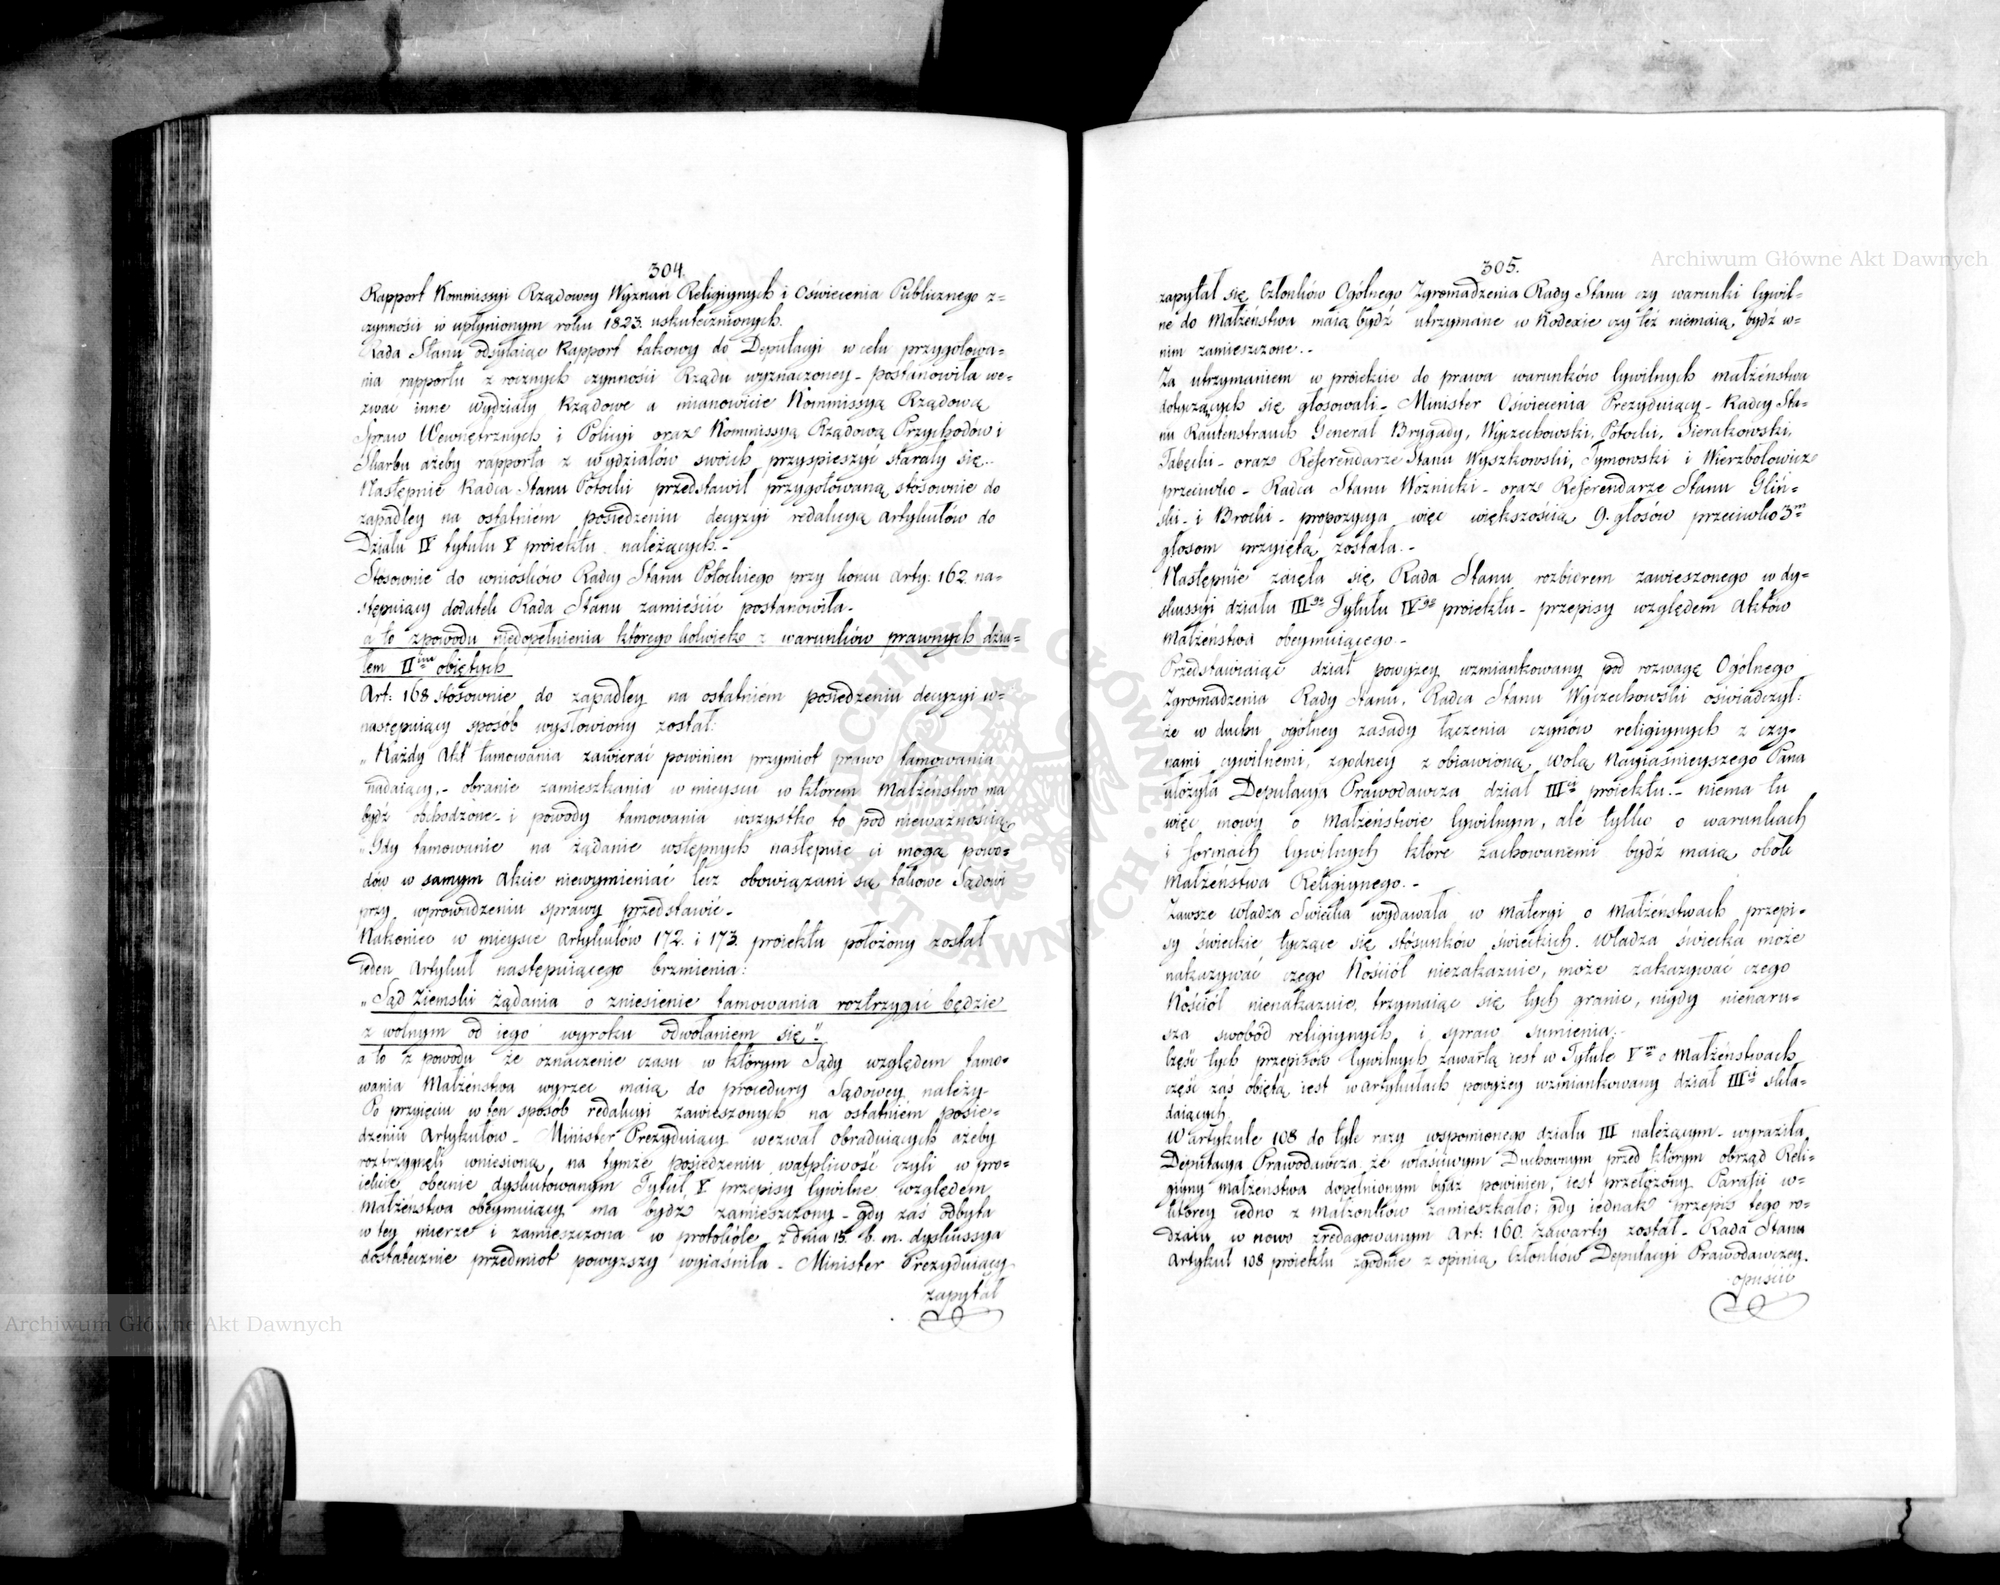 304.
Rapport Kommissyi Rządowey Wyznań Religiynych i Oświecenia Publicznego z=
czynności w upłynionym roku 1823. uskutecznionych.
Rada Stanu odsyłaiąc Rapport takowy do Deputacyi w celu przygotowa=
nia rapportu z rocznych czynności Rządu wyznaczoney - postanowiła we=
zwać inne wydziały Rządowe a mianowicie Kommissyą Rządową
Spraw Wewnętrznych i Policyi oraz Kommissyą Rządową Przychodów i
Skarbu ażeby rapporta z wydziałów swoich przyspieszyć starały się.-
Następnie Radca Stanu Potocki przedstawił przygotowaną stosownie do
zapadłey na ostatniem posiedzeniu decyzyi redakcyą Artykułów do
Działu IV tytułu V proiektu należących.-
Stosownie do wniosków Radcy Stanu Potockiego przy końcu Arty: 162 na=
stępuiący dodatek Rada Stanu zamieścić postanowiła.
a to z powodu niedopełnienia którego kolwiek z warunków prawnych dzia=
łem IIim obiętych
Art: 168 stosownie do zapadłey na ostatniem posiedzeniu decyzyi w=
następuiący sposób wysłowiony został:
„Każdy Akt tamowania zawierać powinien przymiot prawo tamowania
nadaiący,- obranie zamieszkania w mieyscu w którem Małżeństwo ma
bydź obchodzone - i powody tamowania wszystko to pod nieważnością
„Gdy tamowanie na żądanie wstępnych następuie ci mogą powo=
dów w samym Akcie niewymieniać lecz obowiązani są takowe Sądowi
przy wprowadzeniu sprawy przedstawić.
Nakoniec w mieysce Artykułów 172. i 173. proiektu położony został
ieden Artykuł następuiącego brzmienia:
„Sąd Ziemski żądania o zniesienie tamowania roztrzygać będzie
z wolnym od iego wyroku odwołaniem się.”
a to z powodu że oznaczenie czasu w którym Sądy względem tamo=
wania Małżeństwa wyrzec maią do procedury Sądowey należy-
Po przyięciu w ten sposób redakcyi zawieszonych na ostatniem posie=
dzeniu Artykułów - Minister Prezyduiący wezwał obraduiących ażeby
roztrzygnęli wniesioną na tymże posiedzeniu wątpliwość czyli w pro=
iekcie obecnie dyskutowanym Tytuł V przepisy Cywilne względem
Małżeństwa obeymuiący ma bydź zamieszczony - gdy zaś odbyta
w tey mierze i zamieszczona w protokóle z dnia 15. b. m. dyskussya
dostatecznie przedmiot powyższy wyiaśniła - Minister Prezyduiący
zapytał
305.
zapytał się Członków Ogólnego Zgromadzenia Rady Stanu czy warunki Cywil=
ne do Małżeństwa maią bydź utrzymane w Kodexie czy też niemaią bydź w=
nim zamieszczone.-
Za utrzymaniem w proiekcie do prawa warunków Cywilnych Małżeństwa
dotyczących się głosowali - Minister Oświecenia Prezyduiący - Radcy Sta=
nu Rautenstrauch Generał Brygady, Wyczechowski, Potocki, Sierakowski,
Tabęcki - oraz Referendarze Stanu Wyszkowski, Tymowski i Wierzbołowicz
przeciwko - Radca Stanu Woznicki - oraz Referendarze Stanu Gliń=
ski - i Brocki - propozycya więc większością 9. głosów przeciwko 3m
głosom przyiętą została.-
Następnie zaięła się Rada Stanu rozbiorem zawieszonego w dy=
skussyi działu IIIgo Tytułu IVgo proiektu - przepisy względem Aktów
Małżeństwa obeymuiącego.-
Przedstawiaiąc dział powyżey wzmiankowany pod rozwagę Ogólnego
Zgromadzenia Rady Stanu, Radca Stanu Wyczechowski oświadczył:
że w duchu ogólney zasady łączenia czynów religiynych z czy=
nami cywilnemi, zgodney z obiawioną wolą Nayiaśnieyszego Pana
ułożyła Deputacya Prawodawcza dział IIIci proiektu.- niema tu
więc mowy o Małżeństwie Cywilnym, ale tylko o warunkach
i formach Cywilnych które zachowanemi bydź maią obok
Małżeństwa Religiynego.-
Zawsze władza Świecka wydawała w materyi o Małżeństwach przepi=
sy świeckie tyczące się stosunków świeckich. Władza świecka może
nakazywać czego Kościół niezakazuie, może zakazywać czego
Kościół nienakazuie, trzymaiąc się tych granic, nigdy nienaru=
sza swobód religiynych i spraw sumienia.-
Część tych przepisów Cywilnych zawartą iest w Tytule Vm o Małżeństwach
część zaś obiętą iest w artykułach powyżey wzmiankowany dział IIIci skła=
daiących.
W artykule 108 do tyle razy wspomionego działu III należącym - wyraziła
Deputacya Prawodawcza że właściwym Duchownym przed którym obrząd Reli=
giyny Małżeństwa dopełnionym bydź powinien, iest przełożony Parafii w=
którey iedno z Małżonków zamieszkało; gdy iednak przepis tego ro=
dzaiu w nowo zredagowanym Art: 160. zawarty został - Rada Stanu
Artykuł 108 proiektu zgodnie z opinią Członków Deputacyi Prawodawczey.
opuścić
Archiwum Główne Akt Dawnych
Archiwum Główne Akt Dawnych
ARCHIWUM GŁÓWNE AKT DAWNYCH